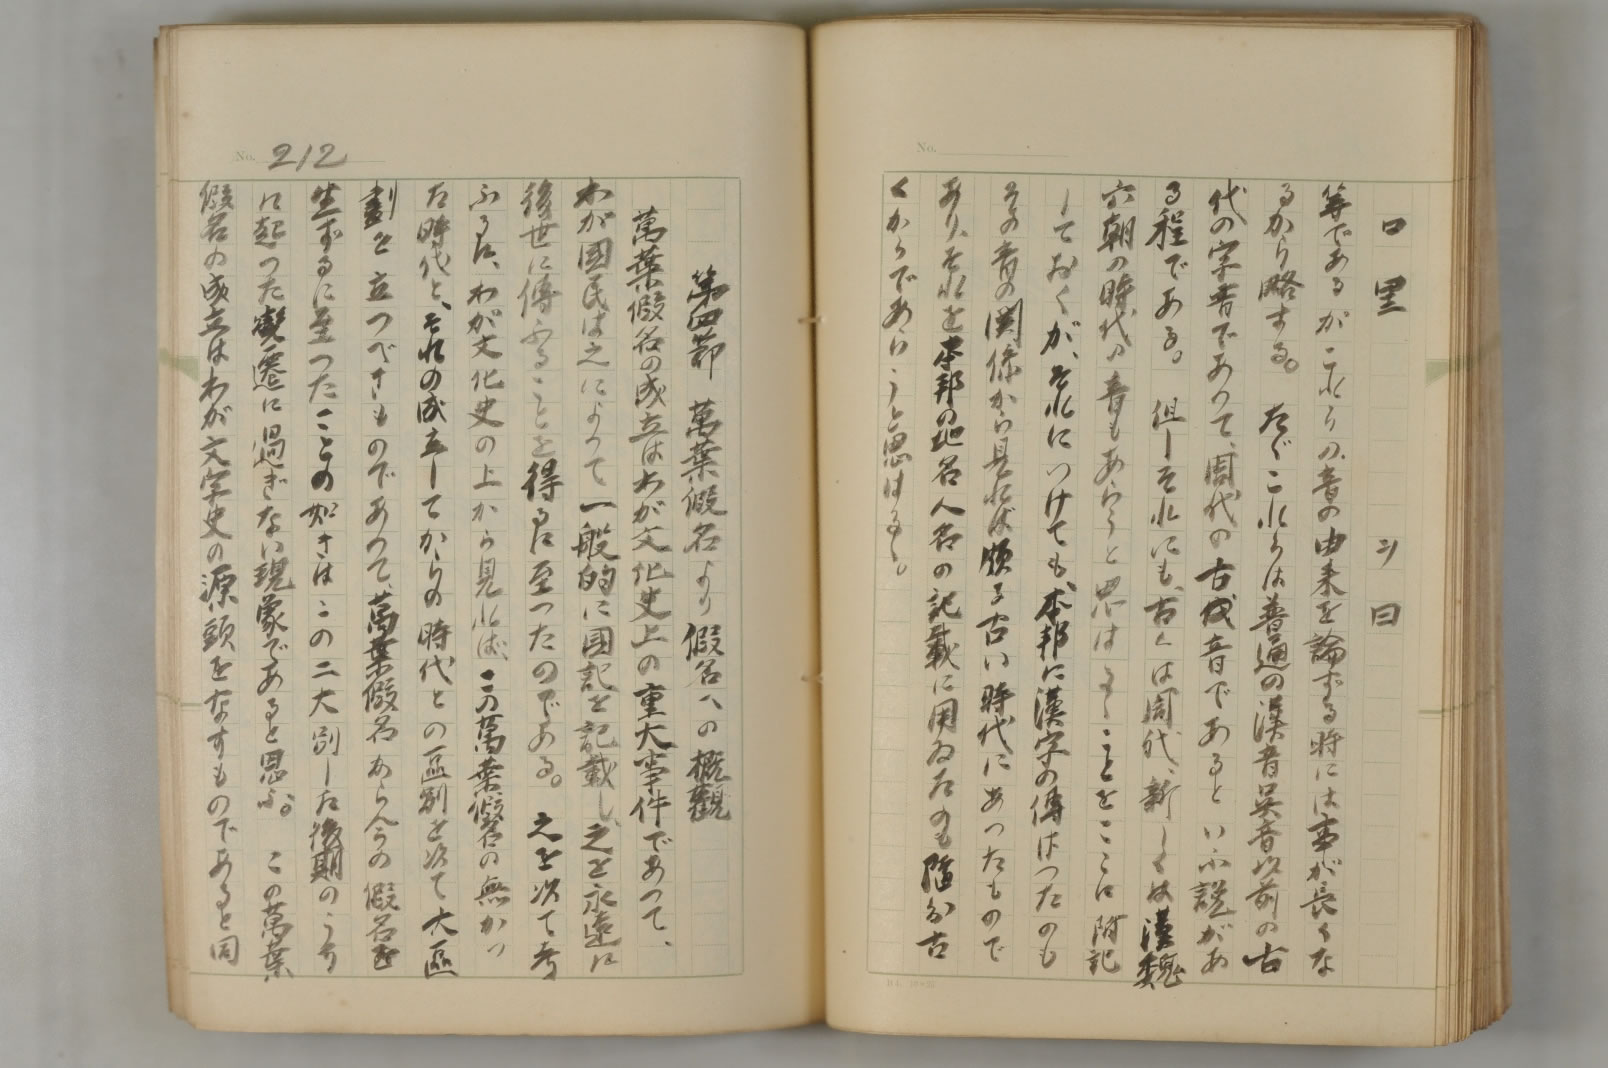 ロ里　シ曰
等であるがこれらの音の由来を論ずる時には事が長くな
るから略する。たゞこれらは普通の漢音呉音以前の古
代の字音であつて、周代の古音であるといふ説があ
る程である。但しそれにも、古くは周代、新しくは漢魏
六朝の時代の音もあらうと思はるゝことをここに附記
しておくが、それにつけても、本邦に漢字の傳はつたのも
その音の関係から見れば頗る古い時代にあつたもので
あり、それを本邦の地名人名の記載に用ゐたのも随分古
くからであらうと思はるゝ。
No.
No. 212
第四節　萬葉假名より假名への概観
萬葉假名の成立はわが文化史上の重大事件であつて、
わが國民は之によつて一般的に國記を記載し、之を永遠に
後世に傳ふることを得るに至つたのである。之を次て考
ふるに、わが文化史の上から見れば、この萬葉假名の無かつ
た時代と、それの成立してからの時代との區別を次て大區
劃を立つべきものであつて、萬葉假名あらんうの假名を
生ずるに至つたことの如きはこの二大別した後期のうち
に起つた變遷に過ぎない現象であると思ふ。この萬葉
假名の成立はわが文字史の源頭をなすものであると同